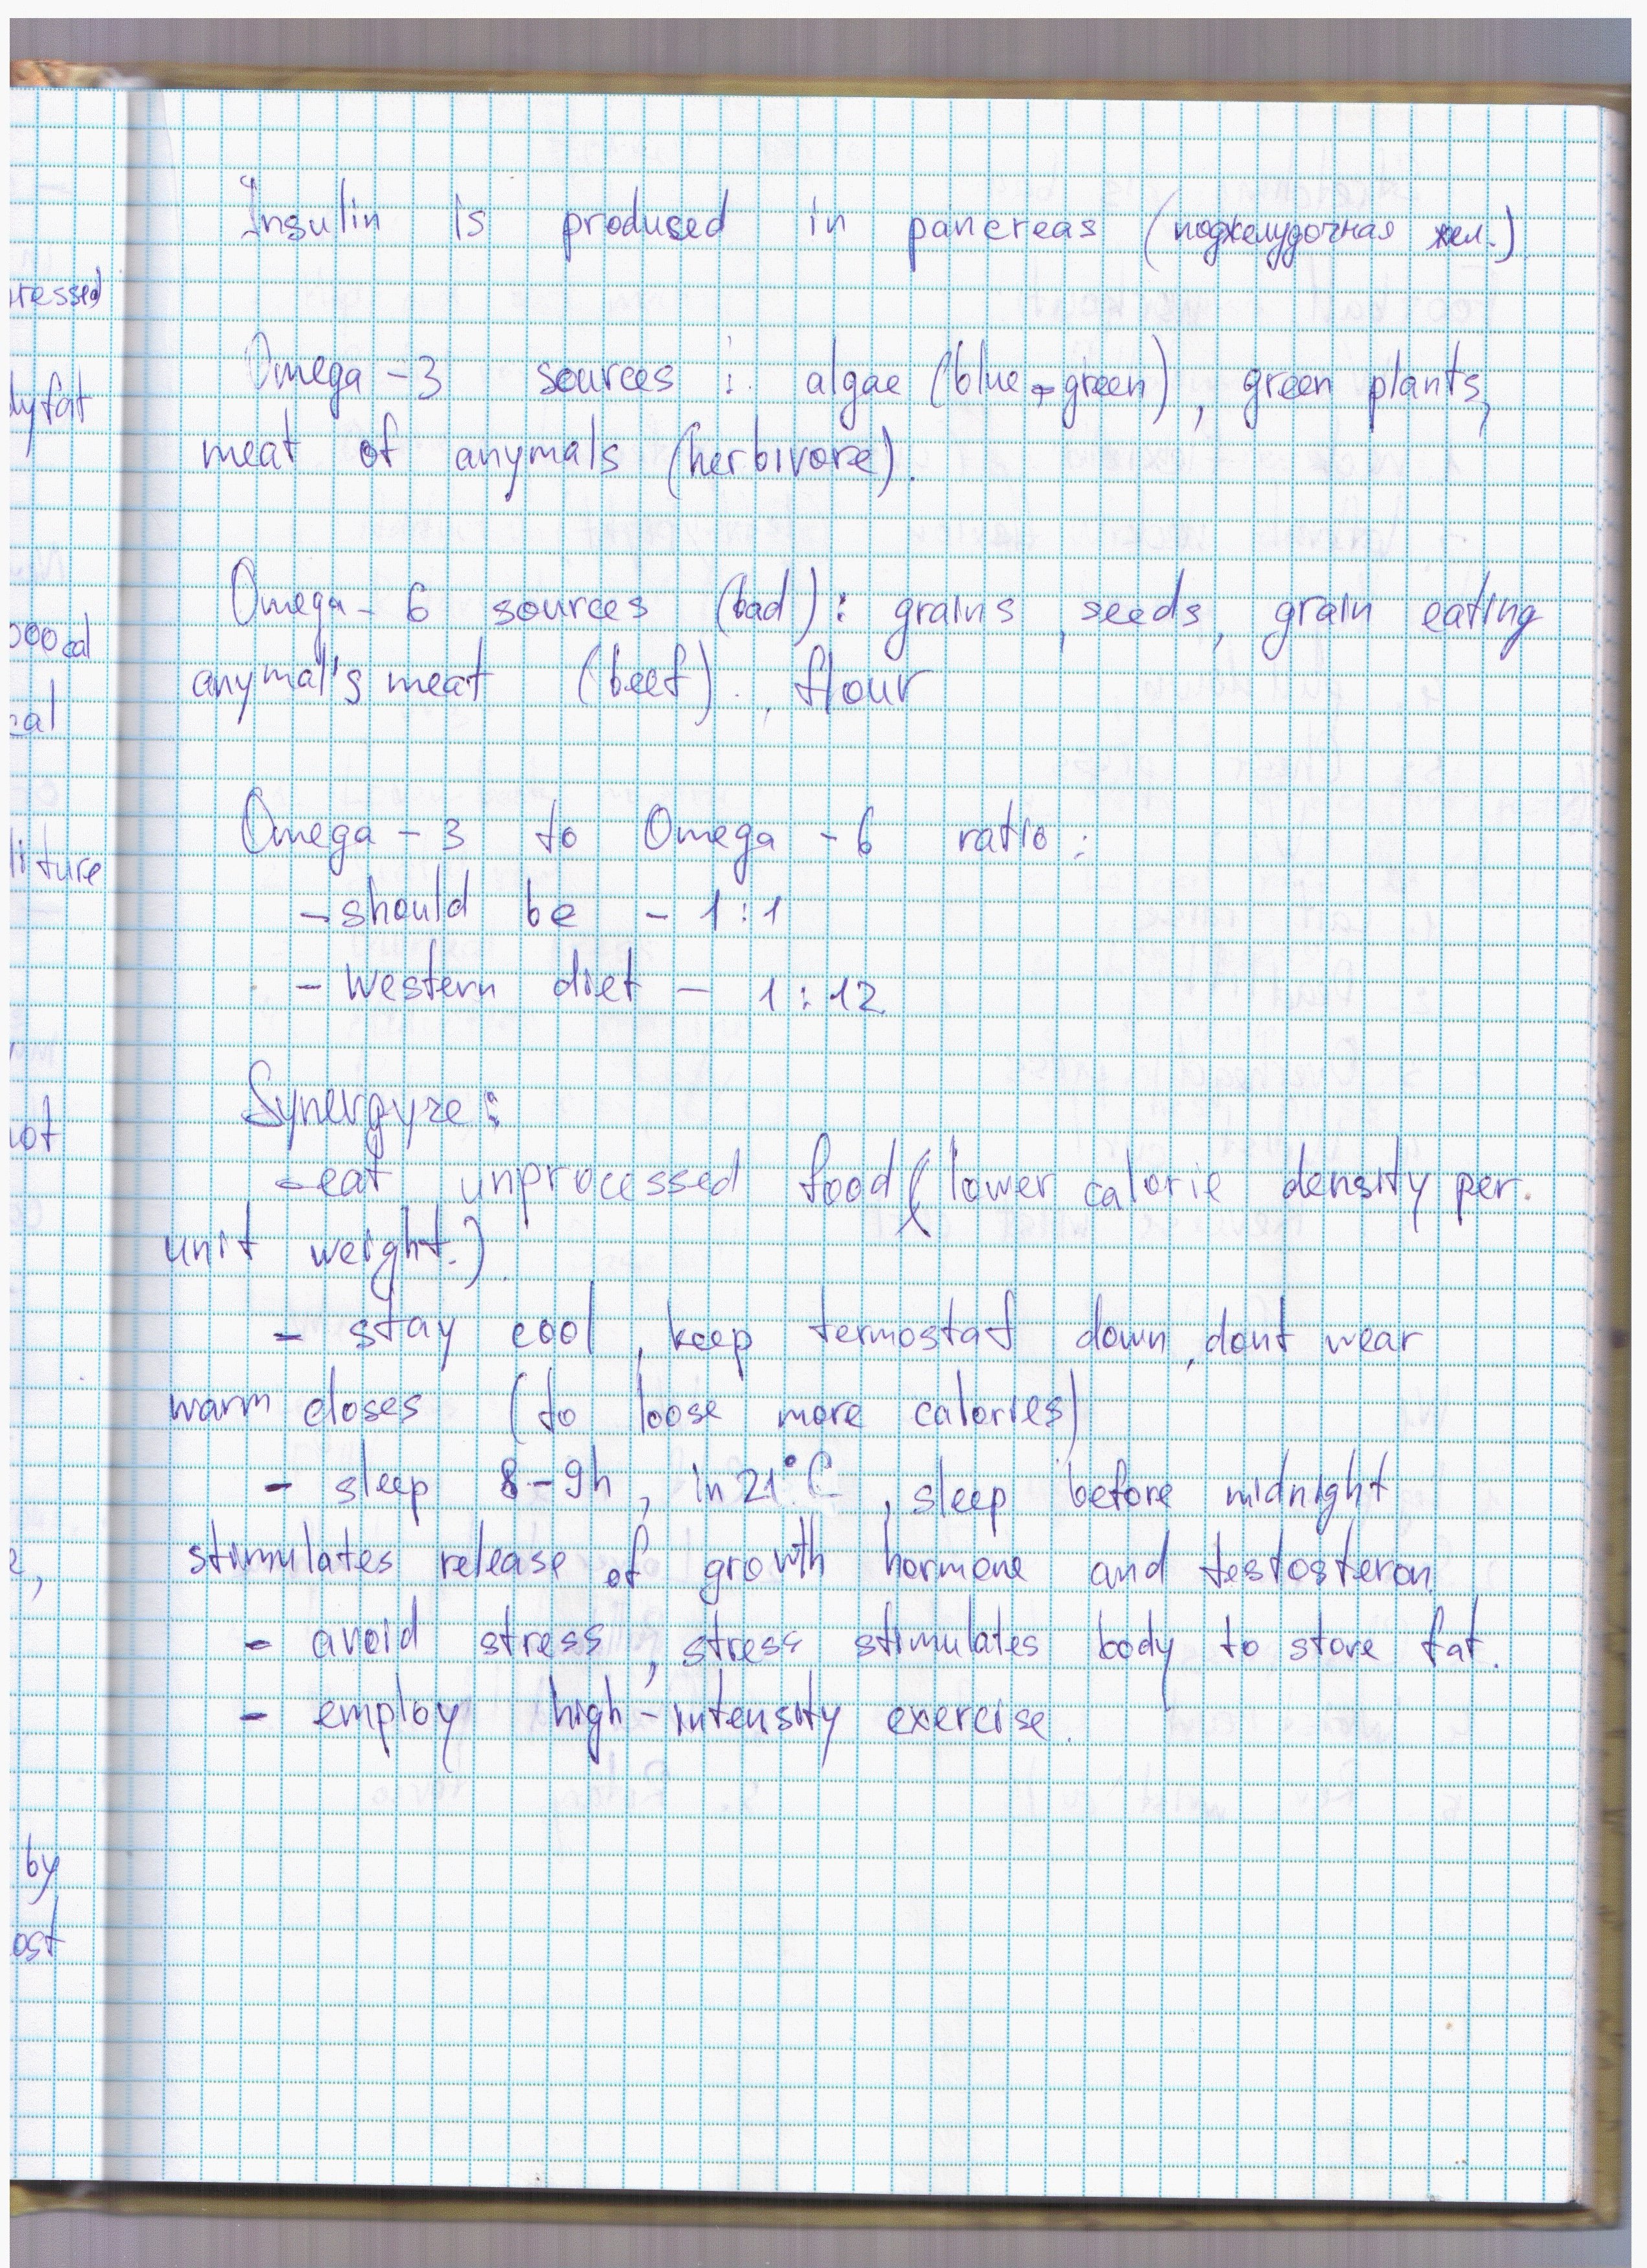 Insulin is prodused in pancreas (поджелудочная жел.)
Omega-3 sources: algae (blue-green), green plants,
meat of anymals (herbivore).
Omega-6 sources (bad): grains, seeds, grain eating
anymal's meat (beef)., flour
Omega-3 to Omega-6 ratio:
- should be - 1:1
- Western diet - 1:12
Synergyze:
- eat unprocessed food (lower calorie density per
unit weight.).
- stay cool, keep termostat down, dont wear
warm closes (to loose more calories)
- sleep 8-9h, in 21°C, sleep before midnight
stimulates release of growth hormone and testosteron.
- avoid stress, stress stimulates body to store fat.
- employ high-intensity exercise.
ressed
lyfat
000 cal
cal
liture
not
by
ost